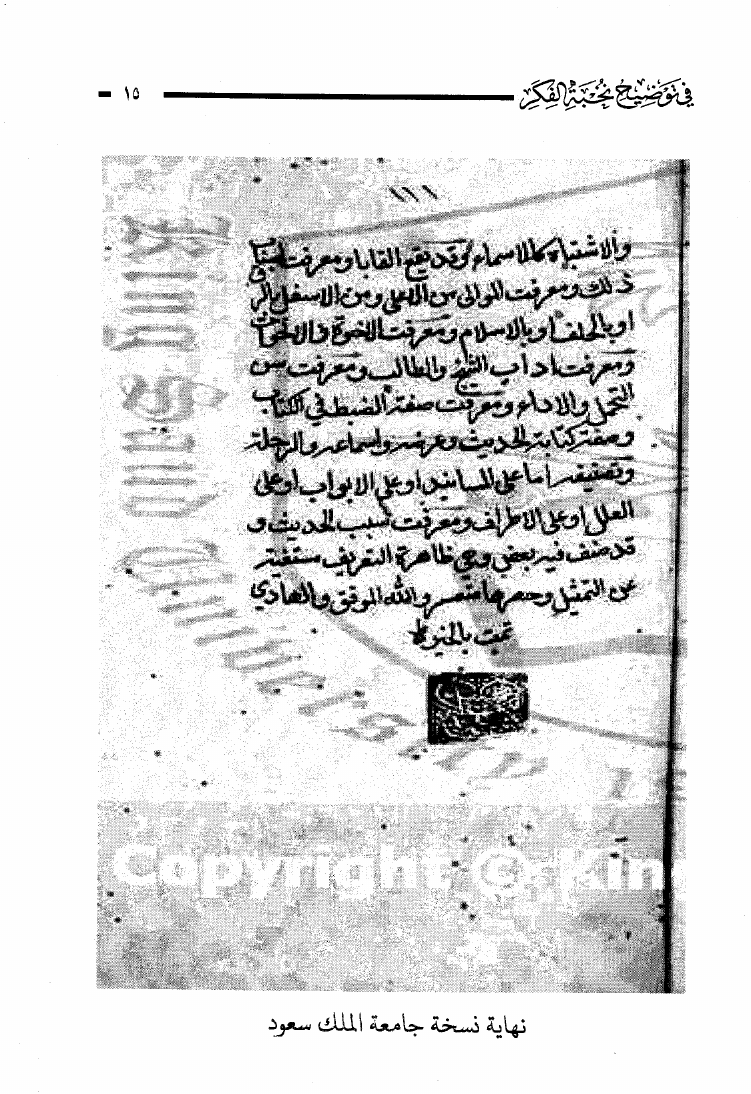 في توضيح نخبة الفكر
١٥
١١٦
والاشتباه كالاسماء وقد يقع القابا ومعرفت
ذلك ومعرفت الموالى من الاعلى ومن الاسفل بالرق
او بالحلف او بالاسلام ومعرفت الاخوة والاخوات
ومعرفت اداب الشيخ والطالب ومعرفت سن
التحمل والاداء ومعرفت صفة الضبط في الكتاب
وصفة كتابة الحديث وعرضه واسماعه والرحلة
وتصنيفه اما على المسانيد او على الابواب او على
العلل او على الاطراف ومعرفت سبب الحديث و
قد صنف فيه بعض وهى ظاهرة التعريف مستغنية
عن التمثيل وحصرها متعسر والله الموفق والهادي
تمت بالخير
King Saud University
Copyright © Kin
نهاية نسخة جامعة الملك سعود